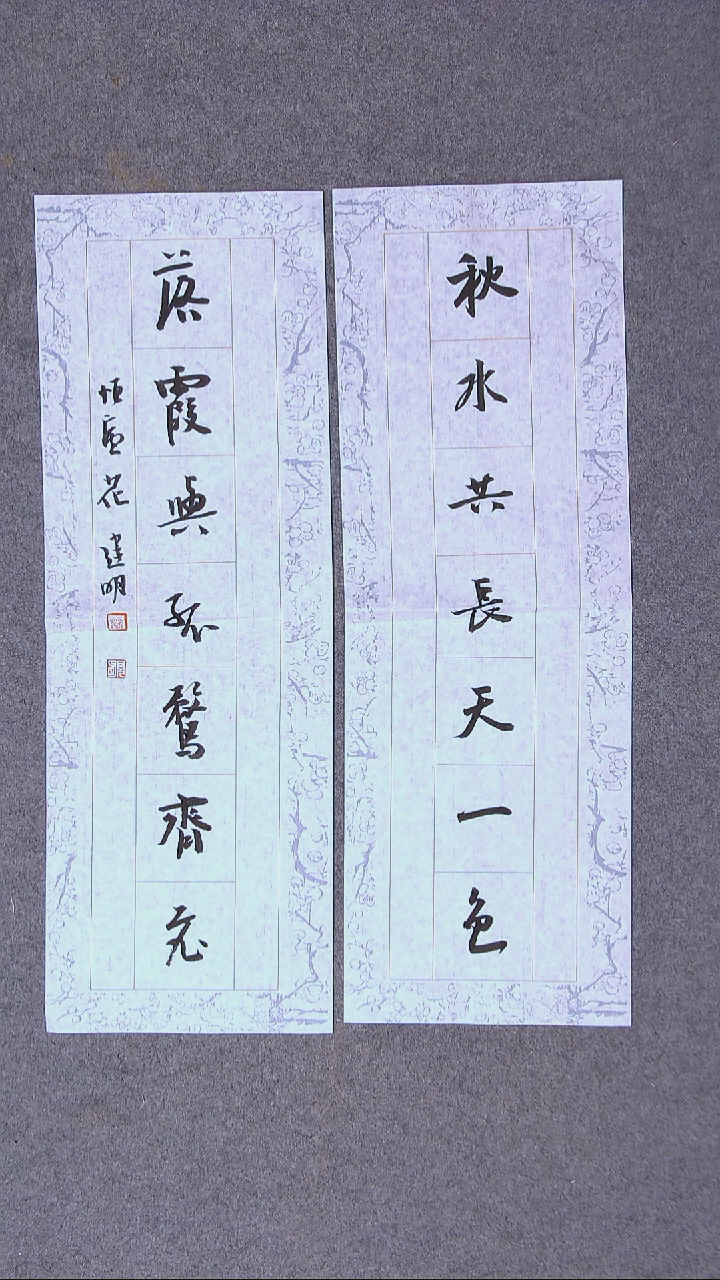 秋水共長天一色
落霞與孤鶩齊飛
恒廬花建明